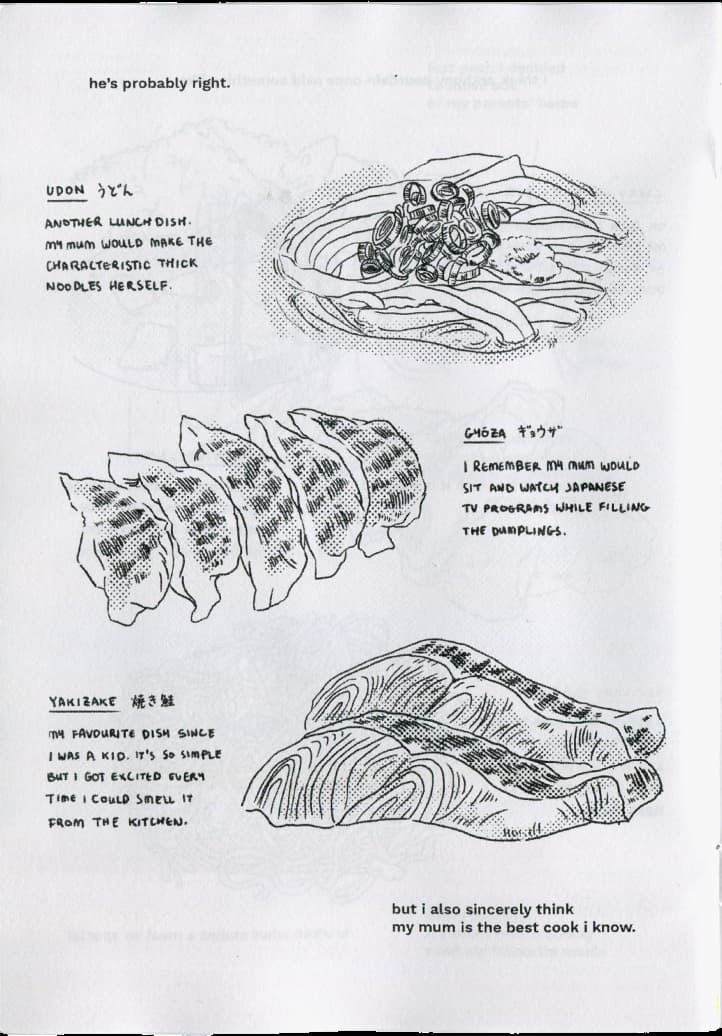 he's probably right.
UDON うどん
ANOTHER LUNCH DISH.
MY MUM WOULD MAKE THE
CHARACTERISTIC THICK
NOODLES HERSELF.
GYOZA ギョウザ
I REMEMBER MY MUM WOULD
SIT AND WATCH JAPANESE
TV PROGRAMS WHILE FILLING
THE DUMPLINGS.
YAKIZAKE 焼き鮭
MY FAVOURITE DISH SINCE
I WAS A KID. IT'S SO SIMPLE
BUT I GOT EXCITED EVERY
TIME I COULD SMELL IT
FROM THE KITCHEN.
but i also sincerely think
my mum is the best cook i know.